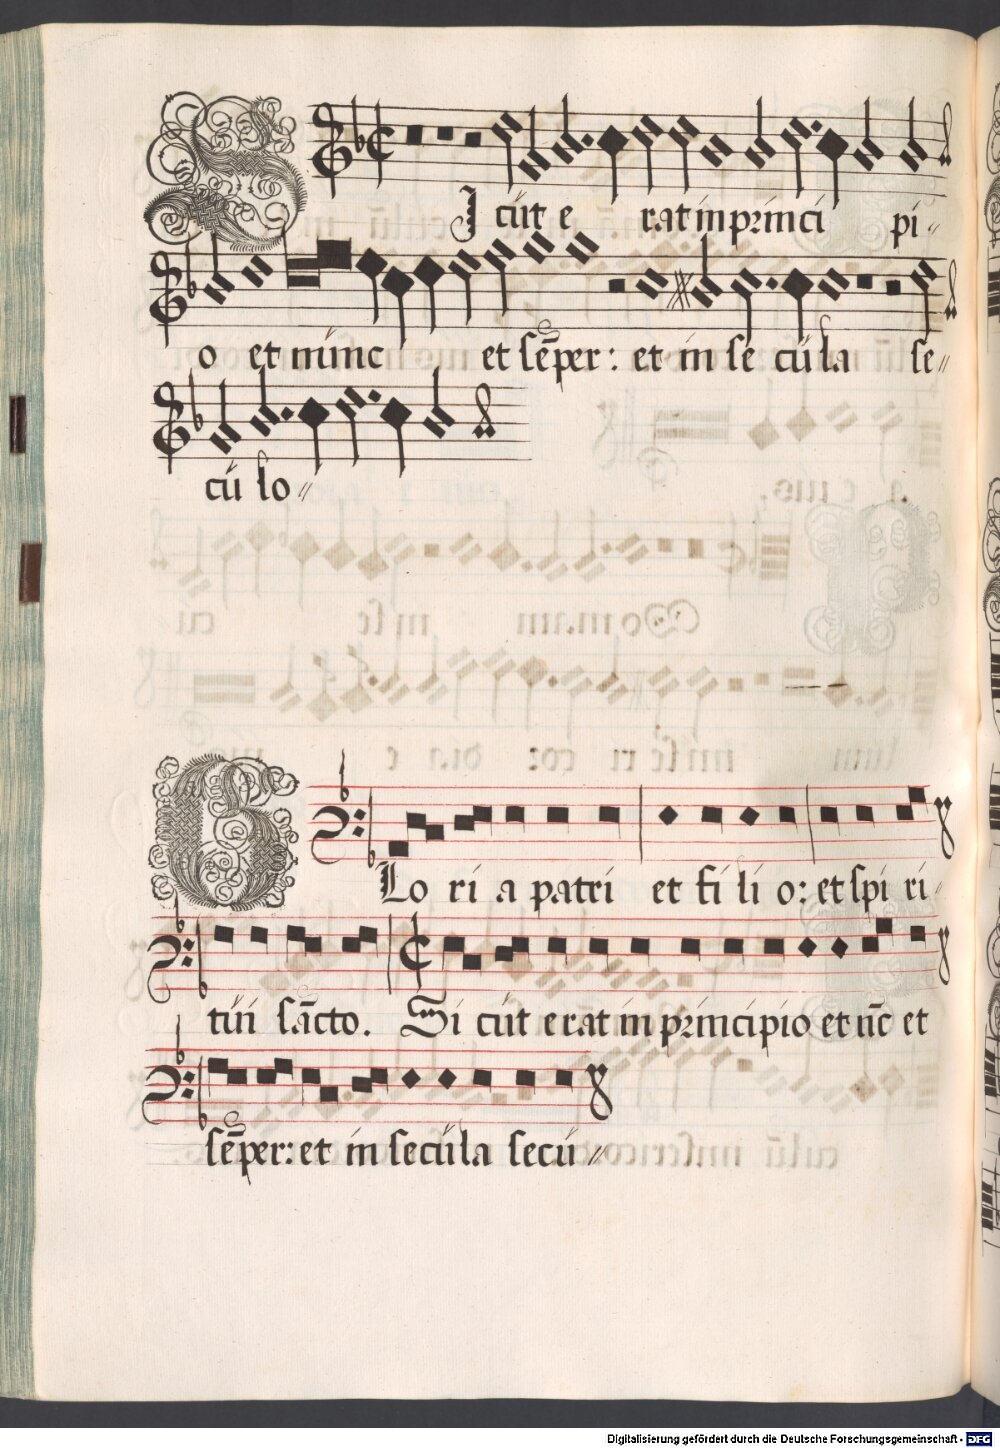 Sicut erat in princi pi-
o et nunc et sēper: et in secula se-
cu lo-
Gloria patri et filio: et spiri-
tui sācto. Sicut erat in principio et nūc et
sēper: et in secula secu-
Digitalisierung gefördert durch die Deutsche Forschungsgemeinschaft - DFG